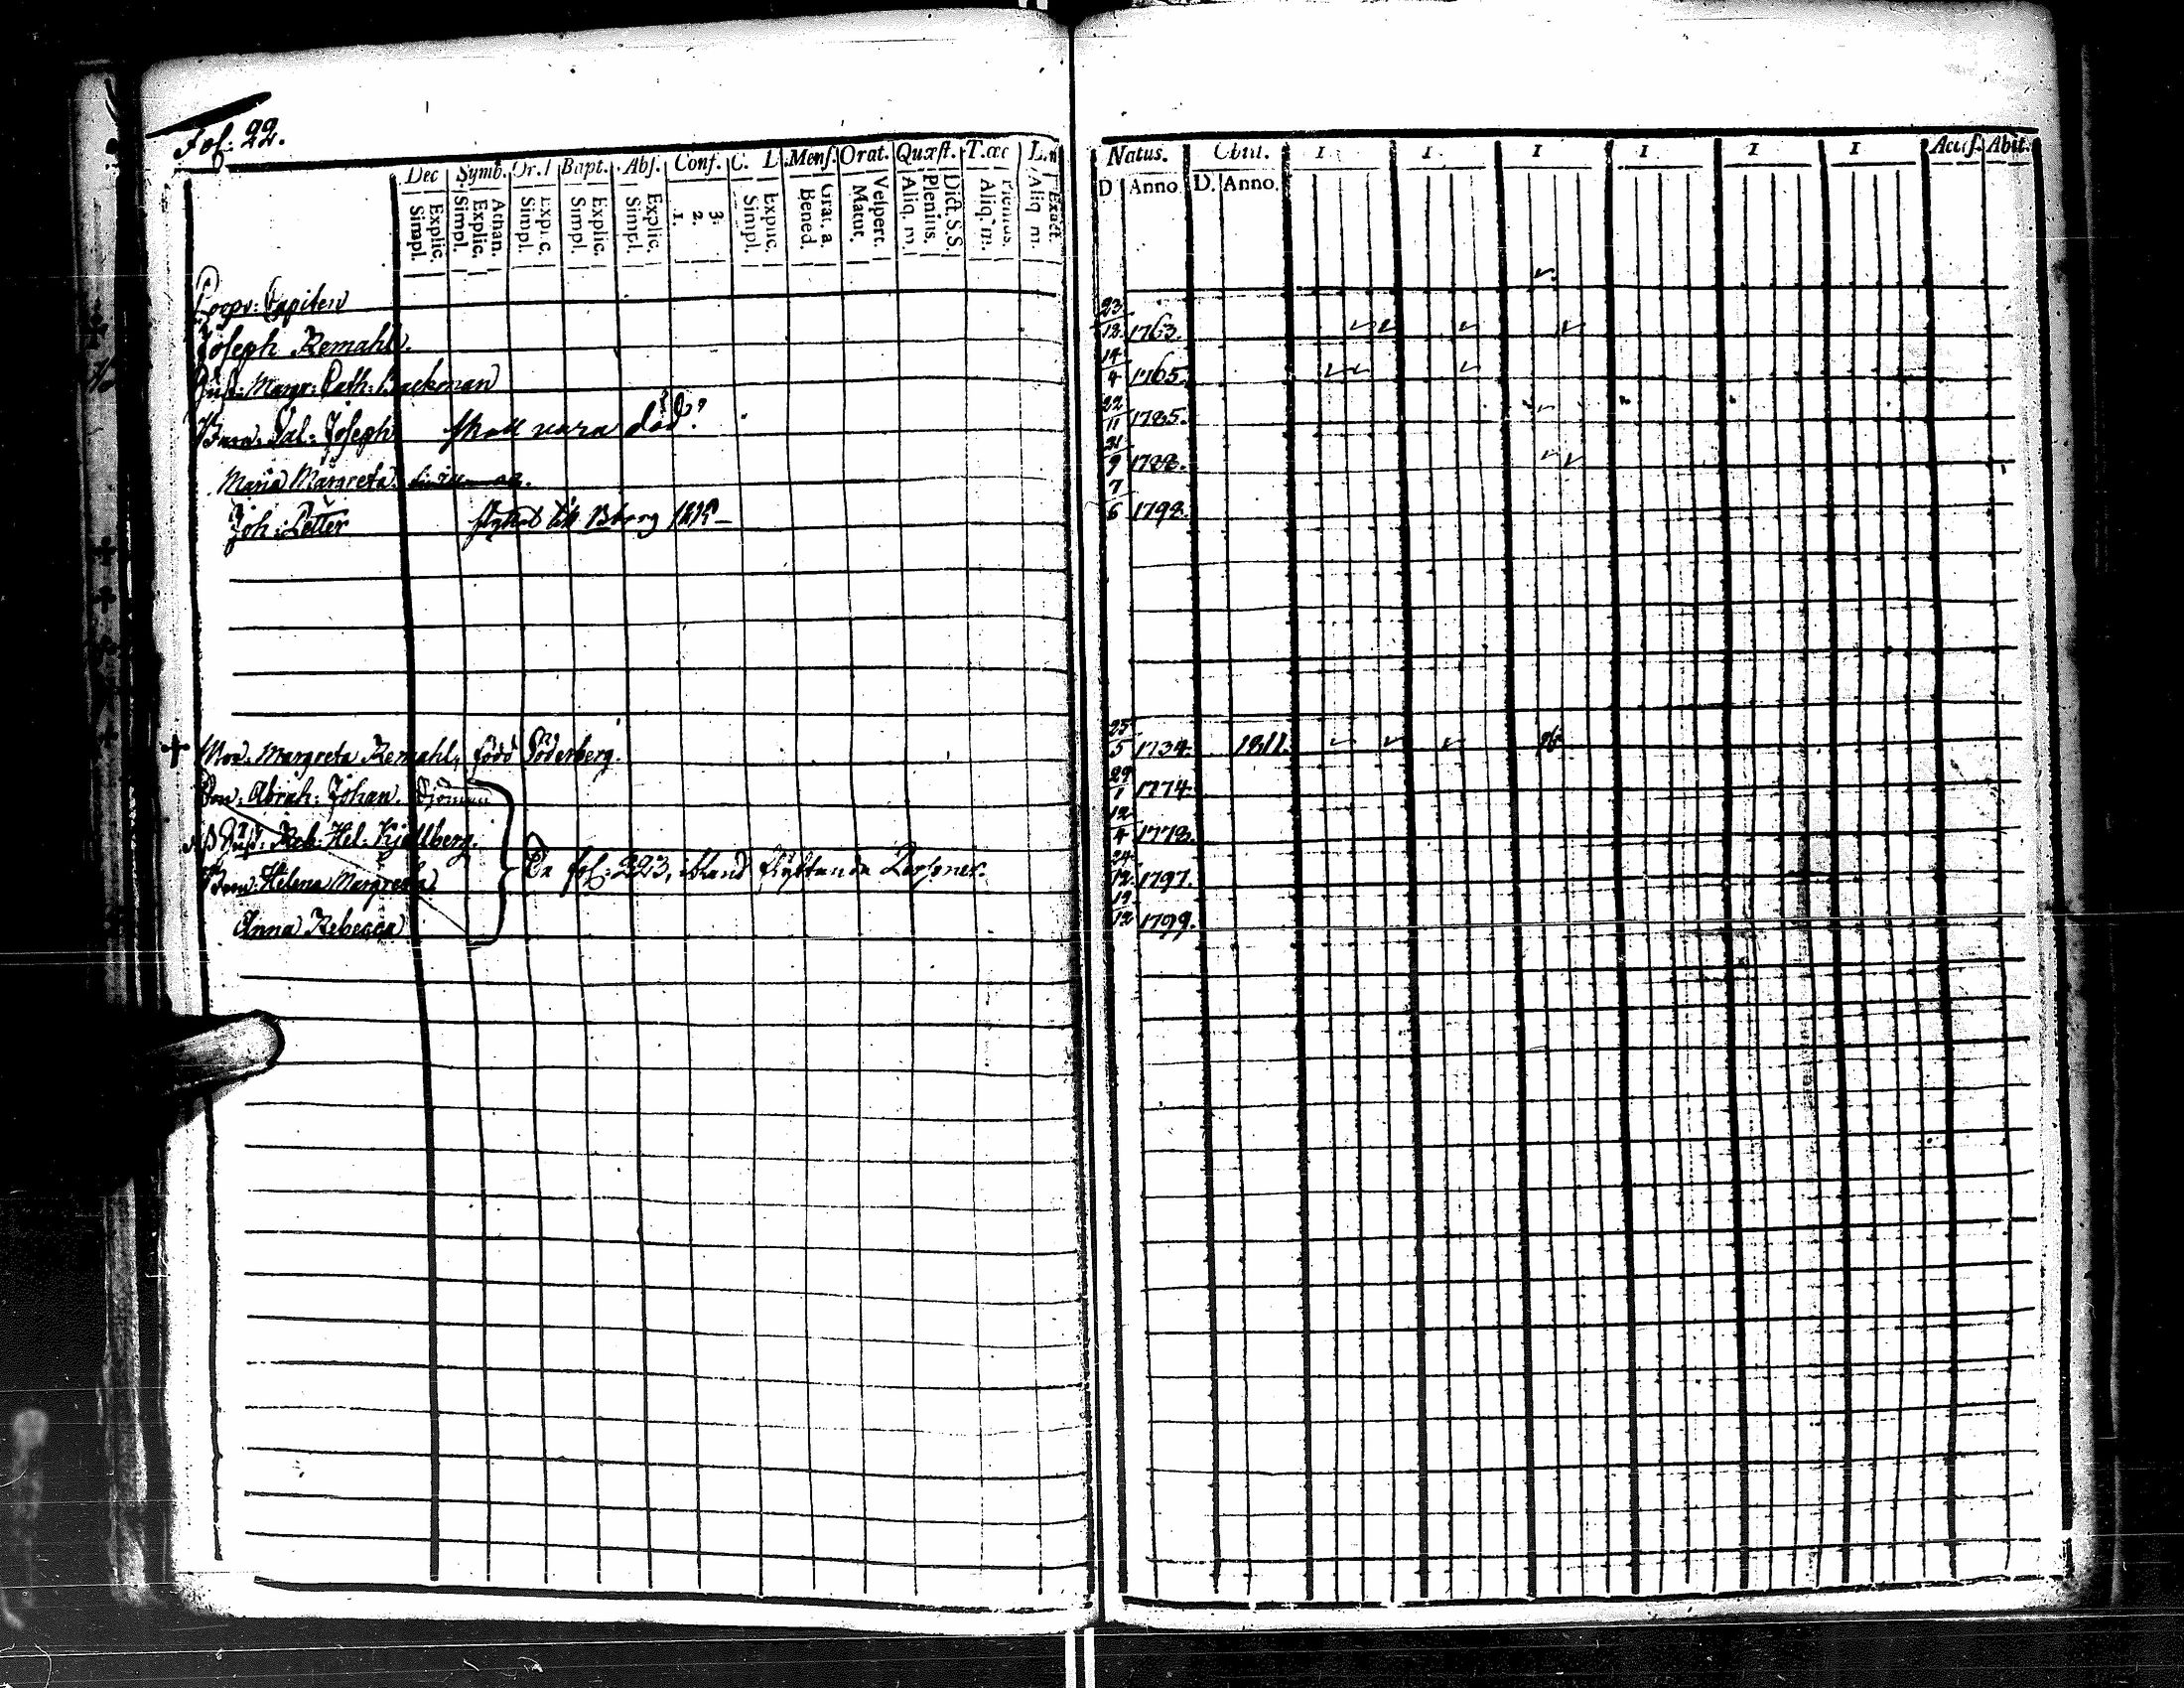 Fol: 22.
Dec Symb. Or. Bapt. Abs. Conf. C. L. Mens. Orat. Quæst. T.œc L.n
Explic. Simpl. Athan. Explic. Simpl. Explic. Simpl. Explic. Simpl. Explic. Simpl. 3. 2. 1. Explic. Simpl. Grat. a. Bened. Vespert. Matut. Dict. S.S. Plenius. Aliq. m. Plenius. Aliq. m. Exact. Aliq m.
Natus. Obiit. I I I I I I Access. Abit.
D Anno. D. Anno.
Coopv: Capiten
Joseph Remahl. 23/12 1763.
Hust: Margr: Cath: Backman 14/4 1765.
Barn: Sal: Joseph skall vara död. 22/11 1785.
Maria Margreta 21/9 1788.
Joh: Petter flyttat till Borg 7/6 1798.
Mod. Margreta Remahl, född Söderberg. 25/5 1734. 1811.
Abrah: Johan. Sjöman 29/1 1774
Hust: Reb: Hel: Kjellberg. 12/4 1778.
Barn: Helena Margreta Se fol: 223, ibland flyttande Personer. 24/12 1797.
Anna Rebecca 19/12 1799.